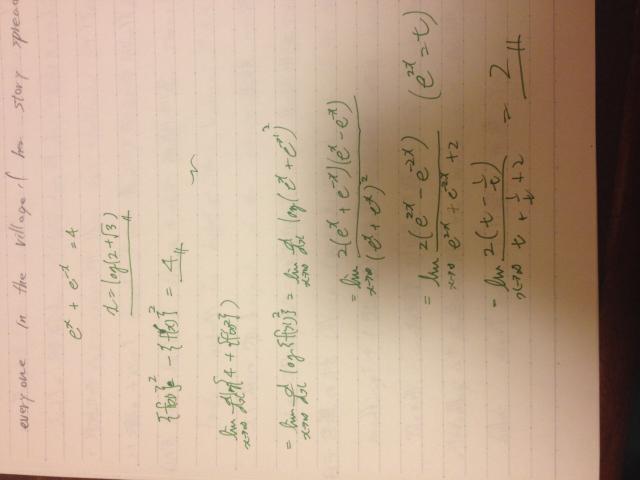 every one in the village. story
e^x + e^-x = 4
x = log(2+√3)
{f(x)}^2 - {f'(x)}^2 = 4
lim x→∞ d/dx log{4 + {f'(x)}^2}
= lim x→∞ d/dx log{f(x)}^2 = lim x→∞ d/dx log(e^x + e^-x)^2
= lim x→∞ 2(e^x + e^-x)(e^x - e^-x) / (e^x + e^-x)^2
= lim x→∞ 2(e^2x - e^-2x) / e^2x + e^-2x + 2 (e^2x = t)
= lim x→∞ 2(t - 1/t) / t + 1/t + 2 = 2